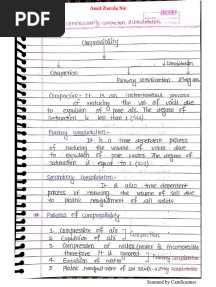 Amit Zarola Sir
PDF
Compressibility
Compaction
Primary consolidation
Consolidation
Compaction:- It is an instantaneous process
of reducing the vol of voids due
to expulsion of pore air. The degree of
saturation is less than 1
Primary consolidation:-
It is a time dependent process
of reducing the volume of voids due
to expulsion of pore water. The degree of
saturation is equal to 1
Secondary consolidation:-
It is also time dependent
process of reducing the volume of soil due
to plastic readjustment of soil solids
# Process of compressibility
1. Compression of air
2. Expulsion of air
Compaction
3. Compression of water
is incompressible
therefore it is ignored
4. Expulsion of water
Primary consolidation
5. Plastic readjustment of soil solids
Scanned by CamScanner